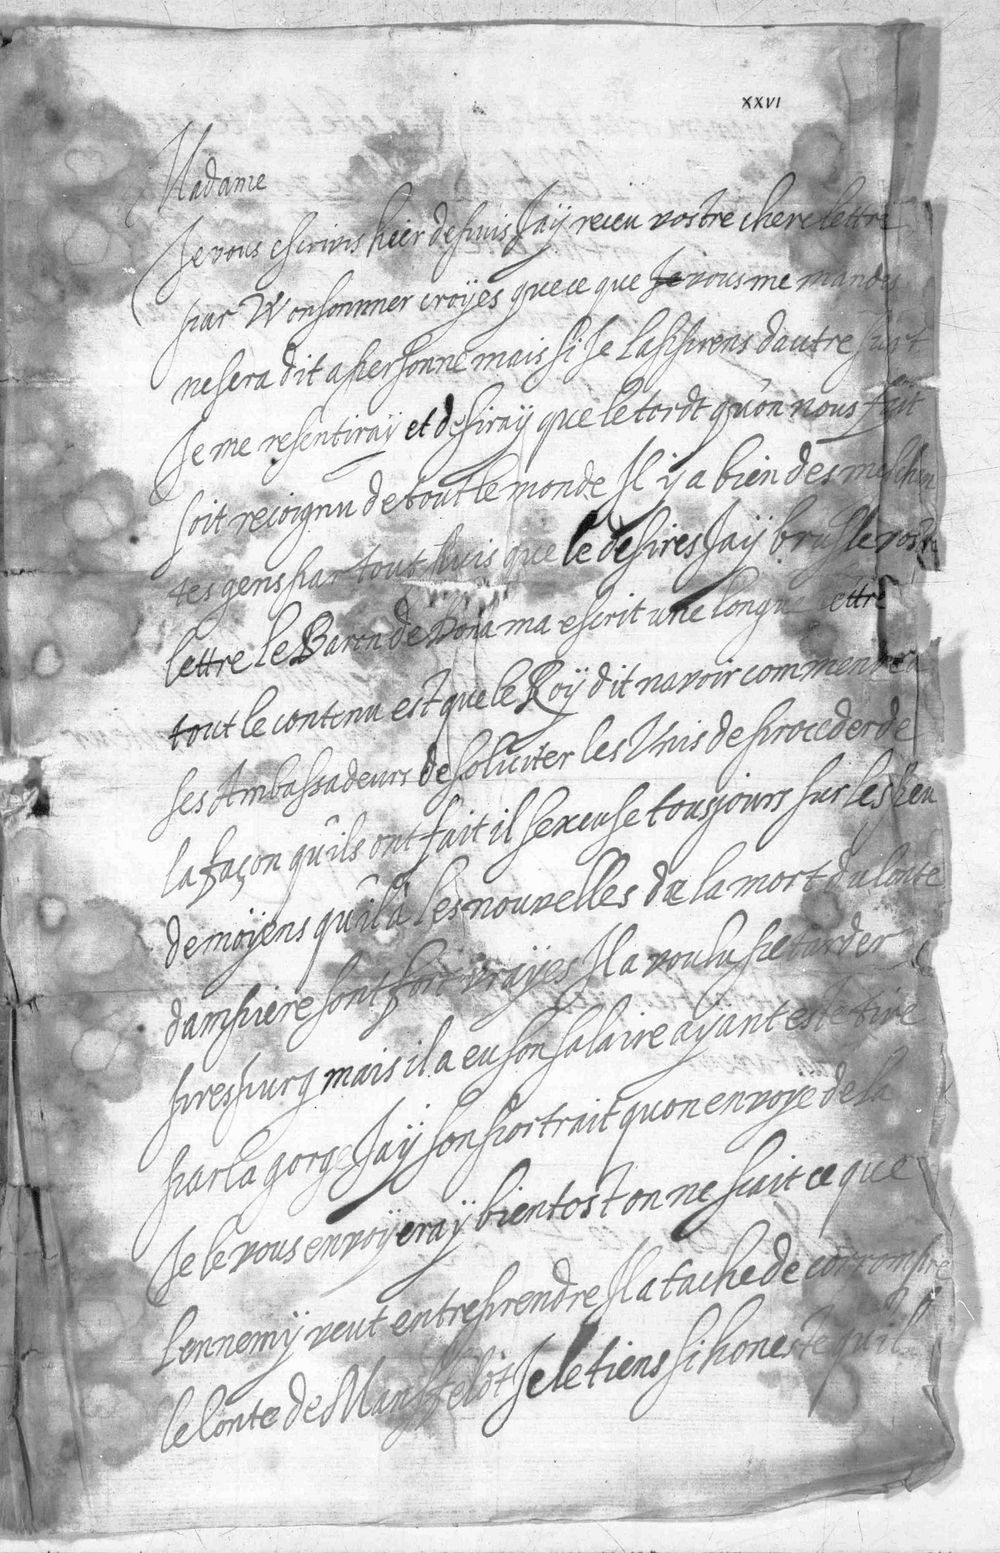 XXVI
Madame
Je vous escrivis hier depuis Jaÿ receu vostre chere lettre
par Wonsonnner croÿes que ce que Je vous me mandes
ne sera dit a personne mais si Je laspprens dautre part
Je me resentiraÿ et desiraÿ que le tordt quon nous fait
soit recoignu de tout le monde Il y a bien des meschan
tes gens par tout puis que le desires Jaÿ brusle vostre
lettre le Baron de Dona ma escrit une longue lettre
tout le contenu est que le Roÿ dit navoir commendé a
ses Ambassadeurs de soliciter les Unis de proceder de
la façon quils ont fait il sexcuse tousjours sur les peu
de moÿens quil a les nouvelles de la mort du Conte
dampiere sont fort vraÿes Il a voulu petarder
prespurg mais il a eu son salaire aÿant este tire
par la gorge Jaÿ son portrait quon envoye de la
Je le vous envoÿeraÿ bientost on ne scait ce que
lennemÿ veut entreprendre Il a tache de corrompre
le Conte de Mansfeldt Je le tiens si honeste quil